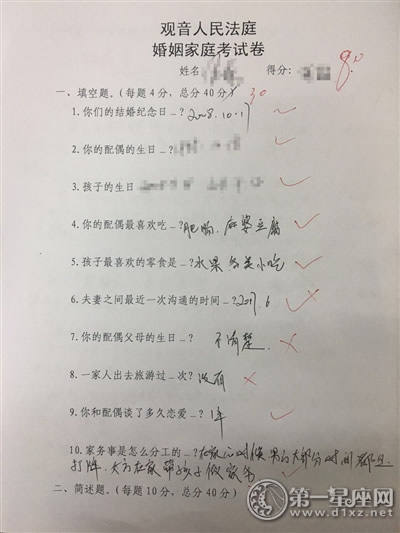 观音人民法庭
婚姻家庭考试卷
姓名 得分:
一、填空题。(每题4分，总分40分) 30
1.你们的结婚纪念日_?2008.10.17
2.你的配偶的生日_?
3.孩子的生日
4.你的配偶最喜欢吃_?肥肠、麻婆豆腐
5.孩子最喜欢的零食是_?水果各类小吃
6.夫妻之间最近一次沟通的时间_?2017.6
7.你的配偶父母的生日_? 不清楚
8.一家人出去旅游过_次?没有
9.你和配偶谈了多久恋爱_? 1年
10.家务事是怎么分工的_?在家的时候男的大部分时间都在
打牌、女方在家带孩子做家务
二、简述题。(每题10分，总分40分)
第一星座网
www.d1xz.net